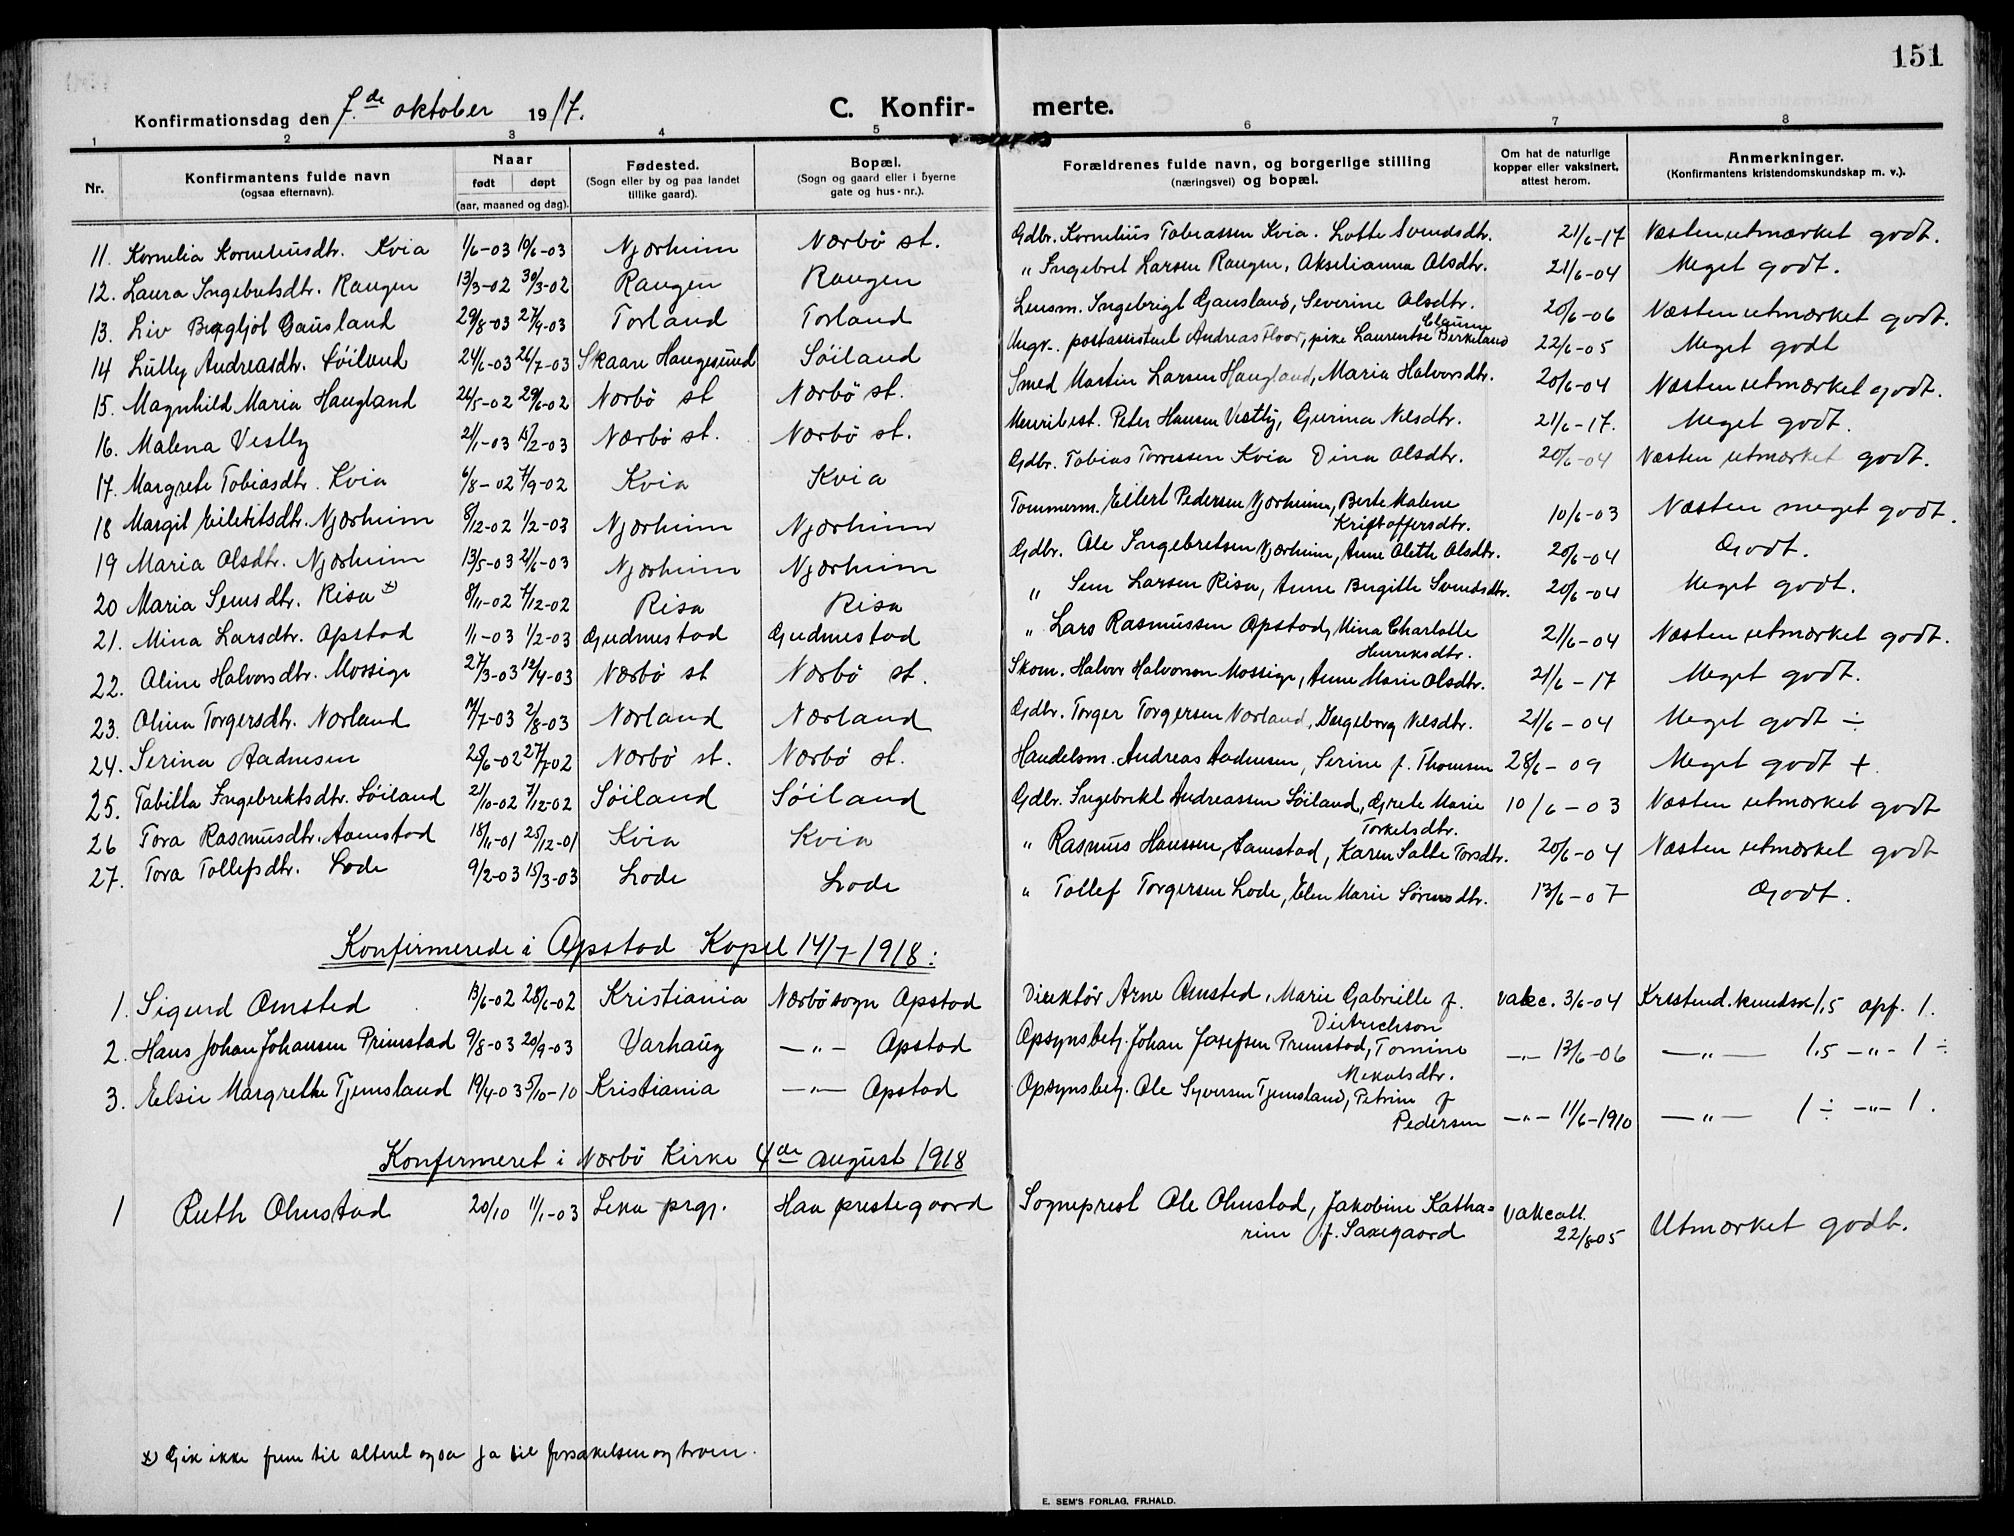 151
Konfirmationsdag den 7.de oktober 1917.
C. Konfir- merte.
1 2 3 4 5 6 7 8
Nr. Konfirmantens fulde navn (ogsaa efternavn). Naar født døpt (aar, maaned og dag). Fødested. (Sogn eller by og paa landet tillike gaard). Bopæl. (Sogn og gaard eller i byerne gate og hus-nr.). Forældrenes fulde navn, og borgerlige stilling (næringsvei) og bopæl. Om hat de naturlige kopper eller vaksinert, attest herom. Anmerkninger. (Konfirmantens kristendomskundskap m. v.).
11. Kornelia Korneliusdtr. Kvia 1/6-03 10/6-03 Njærheim Nærbö st. Gdbr. Kornelius Tobiassen Kvia. Lotte Svendsdtr. 21/6-17 Næsten utmærket godt.
12. Laura Ingebretsdtr. Raugen 13/3-02 30/3-02 Raugen Raugen " Ingebret Larsen Raugen, Akselianna Olsdtr. 21/6-04 Meget godt.
13. Liv Bergljot Gausland 29/8-03 27/9-03 Torland Torland Lensm. Ingebrigt Gausland, Severine Olsdtr. 20/6-06 Næsten utmærket godt.
14 Lully Andreasdtr. Söiland 24/6-03 26/7-03 Skaare Haugesund Söiland Ungk. postassistent Andreas Floor, pike Laurentse Birkeland 22/6-05 Meget godt
15. Magnhild Maria Haugland 26/5-02 29/6-02 Nærbö st Nærbö st. Smed Martin Larsen Haugland, Maria Halvorsdtr. 20/6-04 Næsten utmærket godt.
16. Malena Vestly 21/1-03 15/2-03 Nærbö st. Nærbö st. Meieribest. Peter Hansen Vestly, Gurina Nilsdtr. 21/6-17. Meget godt.
17. Margrete Tobiasdtr. Kvia 6/8-02 7/9-02 Kvia Kvia Gdbr. Tobias Torressen Kvia Dina Olsdtr. 20/6-04 Næsten utmærket godt.
18 Margit Eilertsdtr. Njærheim 8/12-02 1/2-03 Njærheim Njærheim Tømmerm. Eilert Pedersen Njærheim, Berte Malene Kristoffersdtr. 10/6-03 Næsten meget godt.
19 Maria Olsdtr. Njærheim 13/5-03 21/6-03 Njærheim Njærheim Gdbr. Ole Ingebretsen Njærheim, Anne Oleth Olsdtr. 20/6-04 Godt.
20 Maria Semsdtr. Risa x) 8/11-02 7/12-02 Risa Risa " Sem Larsen Risa, Anne Bergitte Svendsdtr. 20/6-04 Meget godt.
21. Mina Larsdtr. Opstad 1/1-03 1/2-03 Gudmestad Gudmestad " Lars Rasmussen Opstad, Mina Charlotte Henriksdtr. 21/6-04 Næsten utmærket godt.
22. Oline Halvorsdtr. Mossige 27/3-03 12/4-03 Nærbö st Nærbö st. Skom. Halvor Halvorson Mossige, Anne Marie Olsdtr. 21/6-17 Meget godt.
23. Olina Torgersdtr. Nærland /7-03 2/8-03 Nærland Nærland Gdbr. Torger Torgersen Nærland, Ingeborg Nilsdtr. 21/6-04 Meget godt ÷
24. Serina Aadnesen 28/6-02 27/7-02 Nærbö st. Nærbö st. Handelsm. Andreas Aadnesen, Serine f. Thomsen 28/6-09 Meget godt +.
25. Tabitta Ingebrektsdtr. Söiland 21/10-02 7/12-02 Söiland Söiland Gdbr. Ingebrekt Andreassen Söiland, Grete Marie Torkelsdtr. 10/6-03 Næsten utmærket godt
26 Tora Rasmusdtr. Aanestad 18/11-01 25/12-01 Kvia Kvia " Rasmus Hanssen, Aanestad, Karen Salle Torsdtr. 20/6-04 Næsten utmærket godt
27. Tora Tollefsdtr. Lode 9/2-03 15/3-03 Lode Lode " Tollef Torgersen Lode, Elen Marie Sörensdtr. 13/6-07 Godt.
Konfirmerede i Opstad Kapel 14/7-1918:
1. Sigurd Omsted 13/6-02 28/6-02 Kristiania Nærbö sogn Opstad Direktör Arne Omsted, Marie Gabrielle f. Dietrichson vakc. 3/6-04 Kristend. kundsk 1,5 opf. 1.
2. Hans Johan Johansen Primstad 9/8-03 20/9-03 Varhaug —"— Opstad Opsynsbetj. Johan Josefsen Primstad, Tomine Mekalsdtr. —"— 13/6-06 —"— 1.5 —"— 1 ÷
3. Elsie Margrethe Tjemsland 19/4-03 5/10-10 Kristiania —"— Opstad Opsynsbetj. Ole Syversen Tjemsland, Petrine f Pedersen —"— 11/6-1910 —"— 1 ÷ —"— 1.
Konfirmeret i Nærbö Kirke 4de august 1918
1 Ruth Olmstad 20/10 11/1-03 Leka prgj. Haa prestegaard Sogneprest Ole Olmstad, Jakobine Katharine f. Saxegaard Vakcatt. 22/8 05 Utmærket godt.
x) Gik ikke frem til alteret og sa ja til forsakelsen og troen.
E. SEM'S FORLAG. FR.HALD.